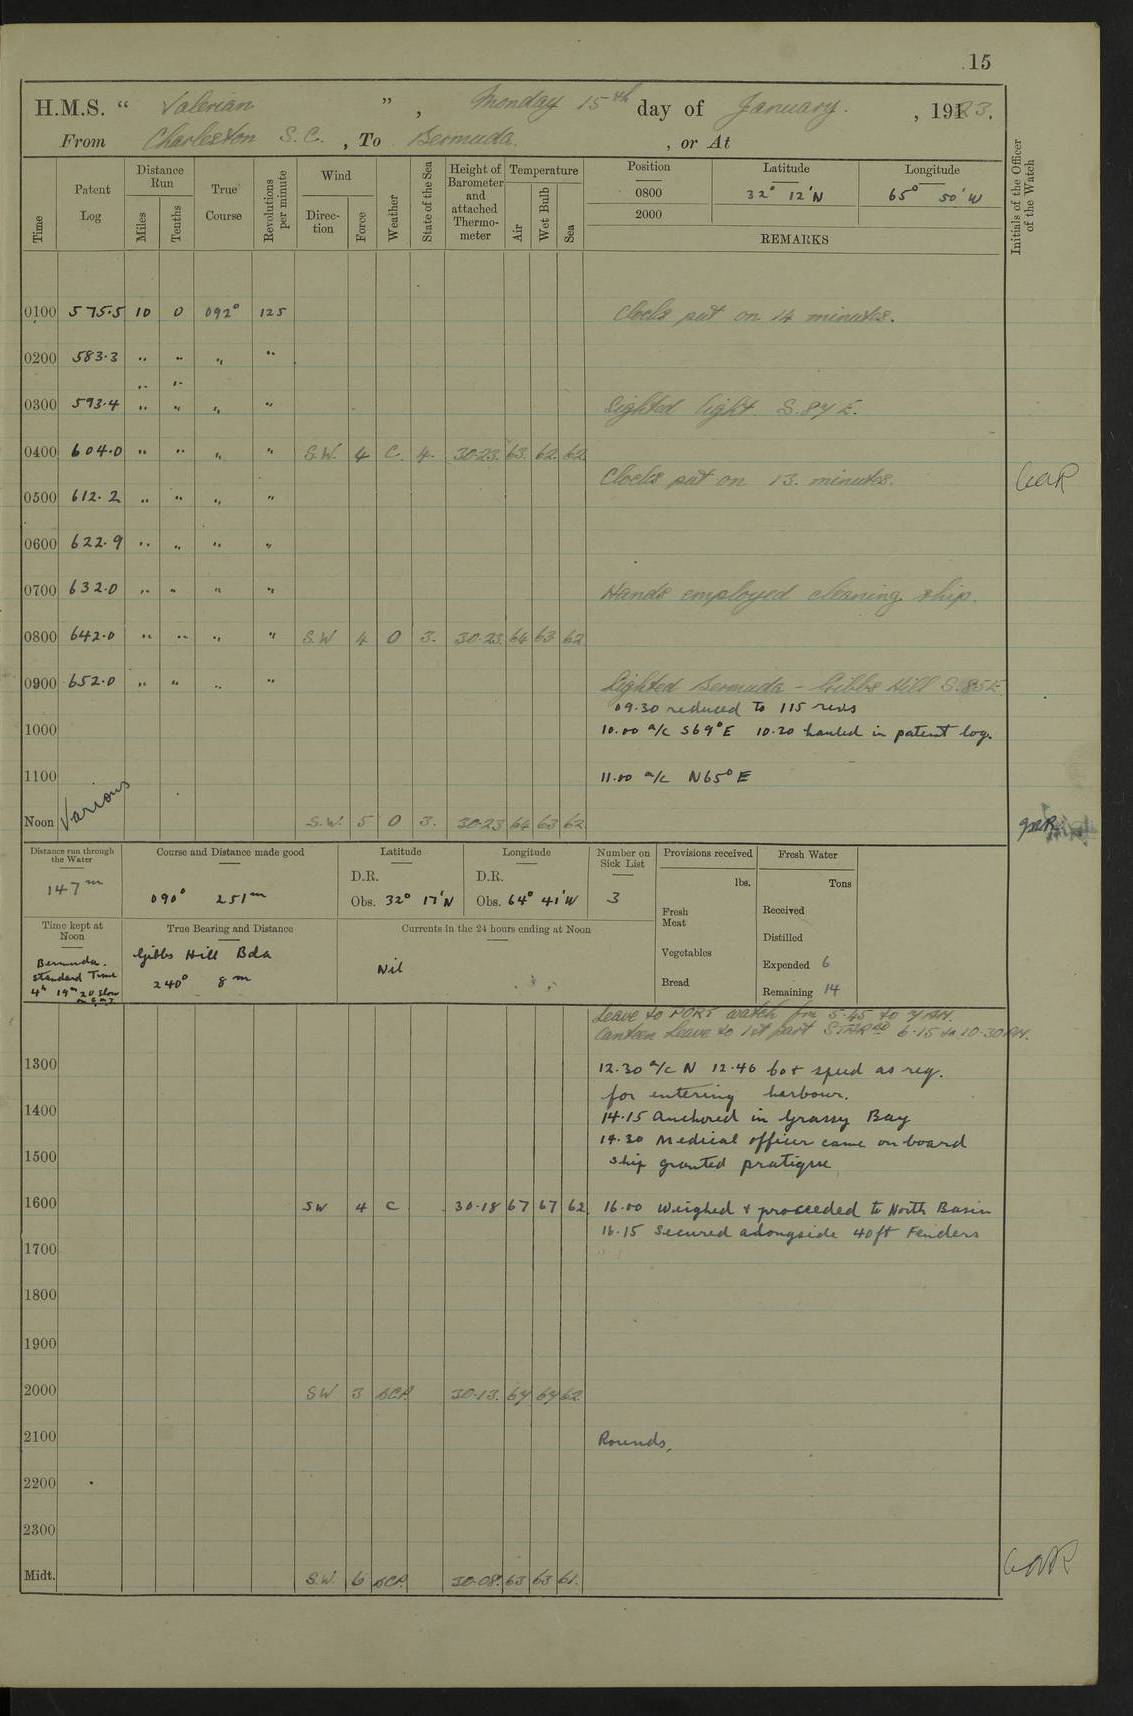 15
H.M.S. “ Valerian ” , Monday 15th day of January. , 1923.
From Charleston S.C. , To Bermuda. , or At
Time
Patent Log
Distance Run
Miles
Tenths
True Course
Revolutions per minute
Wind
Direction
Force
Weather
State of the Sea
Height of Barometer and attached Thermometer
Temperature
Air
Wet Bulb
Sea
Position
Latitude
Longitude
0800 32° 12'N 65° 50'W
2000
REMARKS
Initials of the Officer of the Watch
0100 575.5 10 0 092° 125 Clocks put on 14 minutes.
0200 583.3 " " " "
" "
0300 593.4 " " " " Sighted light S.87E.
0400 604.0 " " " " S.W. 4 C. 4. 30.23. 63. 62. 62
Clocks put on 13. minutes.
0500 612.2 " " " "
0600 622.9 " " " "
0700 632.0 " " " " Hands employed cleaning ship.
0800 642.0 " " " " S.W 4 O 3. 30.23. 64 63 62
0900 652.0 " " " " Sighted Bermuda - Gibbs Hill S.85E.
09.30 reduced to 115 revs
1000 10.00 a/c S69°E 10.20 hauled in patent log.
1100 11.00 a/c N65°E
Noon Various S.W. 5 O 3. 30.23 64 63 62.
Distance run through the Water
147m
Course and Distance made good
090° 251m
Latitude
D.R.
Obs. 32° 17'N
Longitude
D.R.
Obs. 64° 41'W
Number on Sick List
3
Provisions received
lbs.
Fresh Meat
Vegetables
Bread
Fresh Water
Tons
Received
Distilled
Expended 6
Remaining 14
Time kept at Noon
Bermuda.
Standard Time
4h 19m 20 slow
on G.M.T
True Bearing and Distance
Gibbs Hill Bda
240° 8m
Currents in the 24 hours ending at Noon
Nil
Leave to PORT watch fm 5.45 to 7 AM.
Canteen leave to 1st part STARBD 6.15 to 10.30PM.
1300 12.30 a/c N 12.46 co & speed as req.
for entering harbour.
1400 14.15 Anchored in Grassy Bay
14.30 Medical officer came on board
1500 Ship granted pratique
1600 SW 4 C 30.18 67 67 62 16.00 Weighed & proceeded to North Basin
16.15 Secured alongside 40ft Fenders
1700
1800
1900
2000 SW 3 BCP. 30.13. 64 64 62
2100 Rounds.
2200
2300
Midt. S.W. 6 BCP. 30.08. 63 63 61.